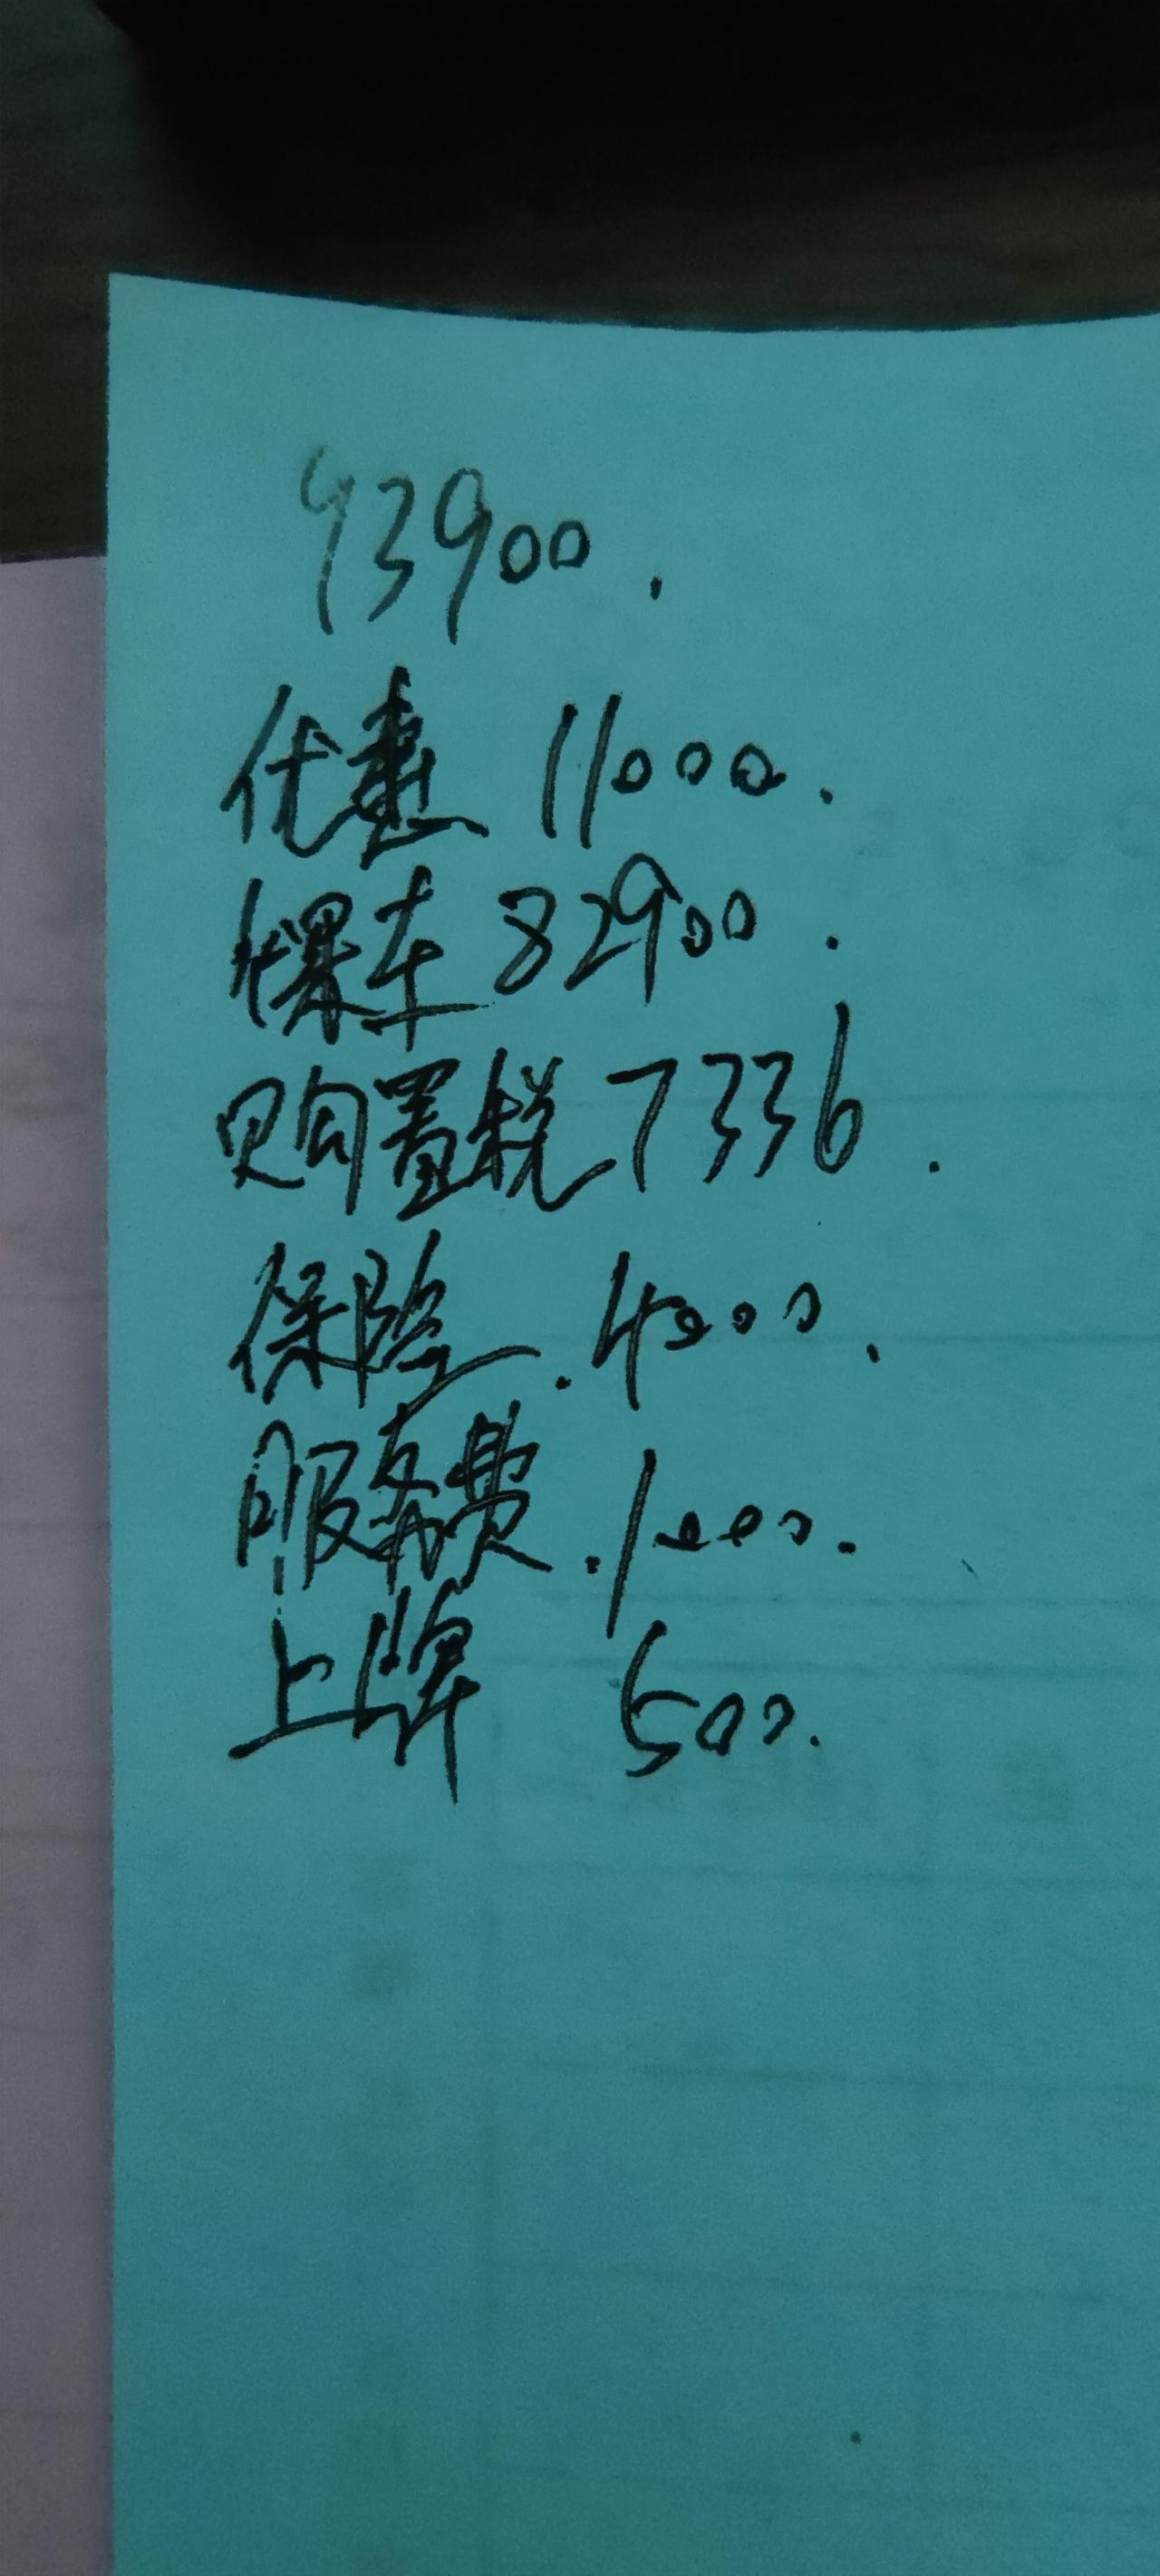 93900.
优惠 11000.
裸车 82900.
购置税 7336.
保险.4000.
服务费.1000.
上牌 500.